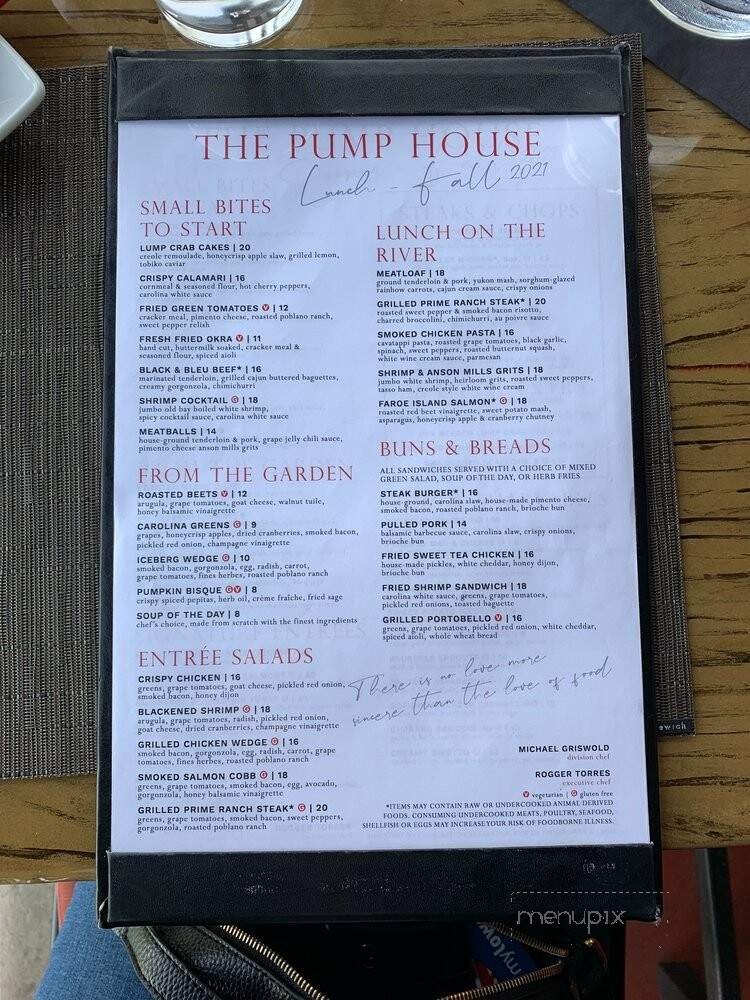 THE PUMP HOUSE
Lunch - Fall 2021
SMALL BITES
TO START
LUMP CRAB CAKES | 20
creole remoulade, honeycrisp apple slaw, grilled lemon,
tobiko caviar
CRISPY CALAMARI | 16
cornmeal & seasoned flour, hot cherry peppers,
carolina white sauce
FRIED GREEN TOMATOES V | 12
cracker meal, pimento cheese, roasted poblano ranch,
sweet pepper relish
FRESH FRIED OKRA V | 11
hand cut, buttermilk soaked, cracker meal &
seasoned flour, spiced aioli
BLACK & BLEU BEEF* | 16
marinated tenderloin, grilled cajun buttered baguettes,
creamy gorgonzola, chimichurri
SHRIMP COCKTAIL G | 18
jumbo old bay boiled white shrimp,
spicy cocktail sauce, carolina white sauce
MEATBALLS | 14
house-ground tenderloin & pork, grape jelly chili sauce,
pimento cheese anson mills grits
FROM THE GARDEN
ROASTED BEETS V | 12
arugula, grape tomatoes, goat cheese, walnut tuile,
honey balsamic vinaigrette
CAROLINA GREENS G | 9
grapes, honeycrisp apples, dried cranberries, smoked bacon,
pickled red onion, champagne vinaigrette
ICEBERG WEDGE G | 10
smoked bacon, gorgonzola, egg, radish, carrot,
grape tomatoes, fines herbes, roasted poblano ranch
PUMPKIN BISQUE G V | 8
crispy spiced pepitas, herb oil, crème fraîche, fried sage
SOUP OF THE DAY | 8
chef's choice, made from scratch with the finest ingredients
ENTRÉE SALADS
CRISPY CHICKEN | 16
greens, grape tomatoes, goat cheese, pickled red onion,
smoked bacon, honey dijon
BLACKENED SHRIMP G | 18
arugula, grape tomatoes, radish, pickled red onion,
goat cheese, dried cranberries, champagne vinaigrette
GRILLED CHICKEN WEDGE G | 16
smoked bacon, gorgonzola, egg, radish, carrot, grape
tomatoes, fines herbes, roasted poblano ranch
SMOKED SALMON COBB G | 18
greens, grape tomatoes, smoked bacon, egg, avocado,
gorgonzola, honey balsamic vinaigrette
GRILLED PRIME RANCH STEAK* G | 20
greens, grape tomatoes, smoked bacon, sweet peppers,
gorgonzola, roasted poblano ranch
LUNCH ON THE
RIVER
MEATLOAF | 18
ground tenderloin & pork, yukon mash, sorghum-glazed
rainbow carrots, cajun cream sauce, crispy onions
GRILLED PRIME RANCH STEAK* | 20
roasted sweet pepper & smoked bacon risotto,
charred broccolini, chimichurri, au poivre sauce
SMOKED CHICKEN PASTA | 16
cavatappi pasta, roasted grape tomatoes, black garlic,
spinach, sweet peppers, roasted butternut squash,
white wine cream sauce, parmesan
SHRIMP & ANSON MILLS GRITS | 18
jumbo white shrimp, heirloom grits, roasted sweet peppers,
tasso ham, creole style white wine cream
FAROE ISLAND SALMON* G | 18
roasted red beet vinaigrette, sweet potato mash,
asparagus, honeycrisp apple & cranberry chutney
BUNS & BREADS
ALL SANDWICHES SERVED WITH A CHOICE OF MIXED
GREEN SALAD, SOUP OF THE DAY, OR HERB FRIES
STEAK BURGER* | 16
house-ground, carolina slaw, house-made pimento cheese,
smoked bacon, roasted poblano ranch, brioche bun
PULLED PORK | 14
balsamic barbecue sauce, carolina slaw, crispy onions,
brioche bun
FRIED SWEET TEA CHICKEN | 16
house-made pickles, white cheddar, honey dijon,
brioche bun
FRIED SHRIMP SANDWICH | 18
carolina white sauce, greens, grape tomatoes,
pickled red onions, toasted baguette
GRILLED PORTOBELLO V | 16
greens, grape tomatoes, pickled red onion, white cheddar,
spiced aioli, whole wheat bread
There is no love more
sincere than the love of food
MICHAEL GRISWOLD
division chef
ROGGER TORRES
executive chef
V vegetarian | G gluten free
*ITEMS MAY CONTAIN RAW OR UNDERCOOKED ANIMAL DERIVED
FOODS. CONSUMING UNDERCOOKED MEATS, POULTRY, SEAFOOD,
SHELLFISH OR EGGS MAY INCREASE YOUR RISK OF FOODBORNE ILLNESS.
menupix